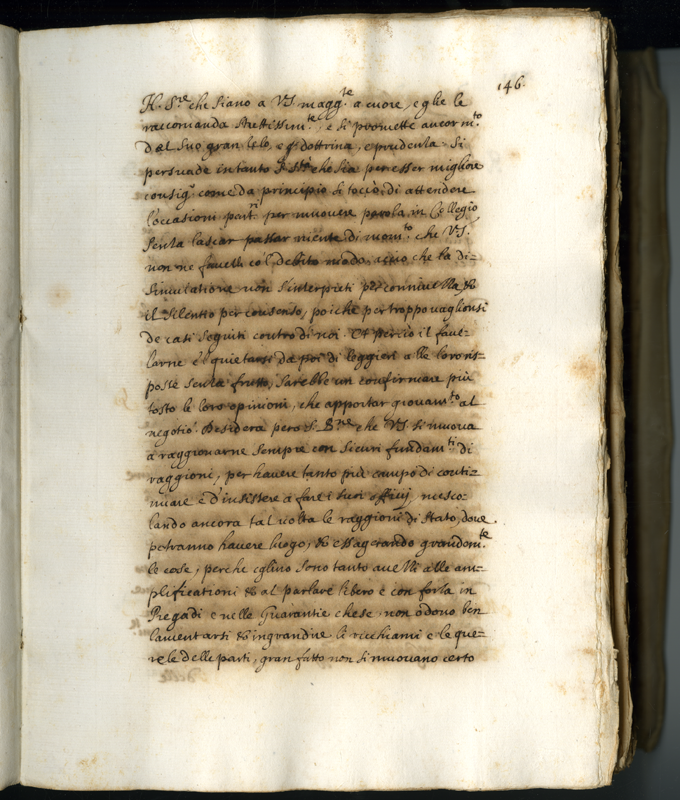 146.
N. S.re che siano a VS magg.te a cuore, e glie le
raccomanda strettissim.te, e si promette ancor m.to
dal suo gran zelo, e gr dottrina, e prudenza. Si
persuade intanto S. Stà che sia per esser migliore
consig.o come da principio si toccò, di attendere
l'occasioni part.ri per muouere parola in Collegio
senza lasciar passar niente di mom.to che VS.
non ne fauelli col debito modo, acciò che la di=
simulatione non s'interpreti per conniuenza, &
il silentio per consenso, poiche pertroppo uaglionsi
de casi seguiti contro di noi. Et perciò il fauel=
larne e'l quietarsi da poi di leggieri alle loro ris=
poste senza frutto, sarebbe un confirmare più
tosto le loro opinioni, che apportar giouam.to al
negotio. Desidera però S. B.ne che VS si muoua
a raggionarne sempre con sicuri fundam.ti di
raggioni, per hauere tanto più campo di conti=
nuare e d'insistere a fare i suoi officij, mesco=
lando ancora tal uolta le raggioni di stato, doue
potranno hauere luogo, & essagerando grandem.te
le cose, perche eglino sono tanto auezzi alle am=
plificationi & al parlare libero e con forza in
Pregadi e nelle Quarantie che se non odono ben
lamentarsi & ingrandire li richiami e le que=
rele delle parti, gran fatto non si muouano certo